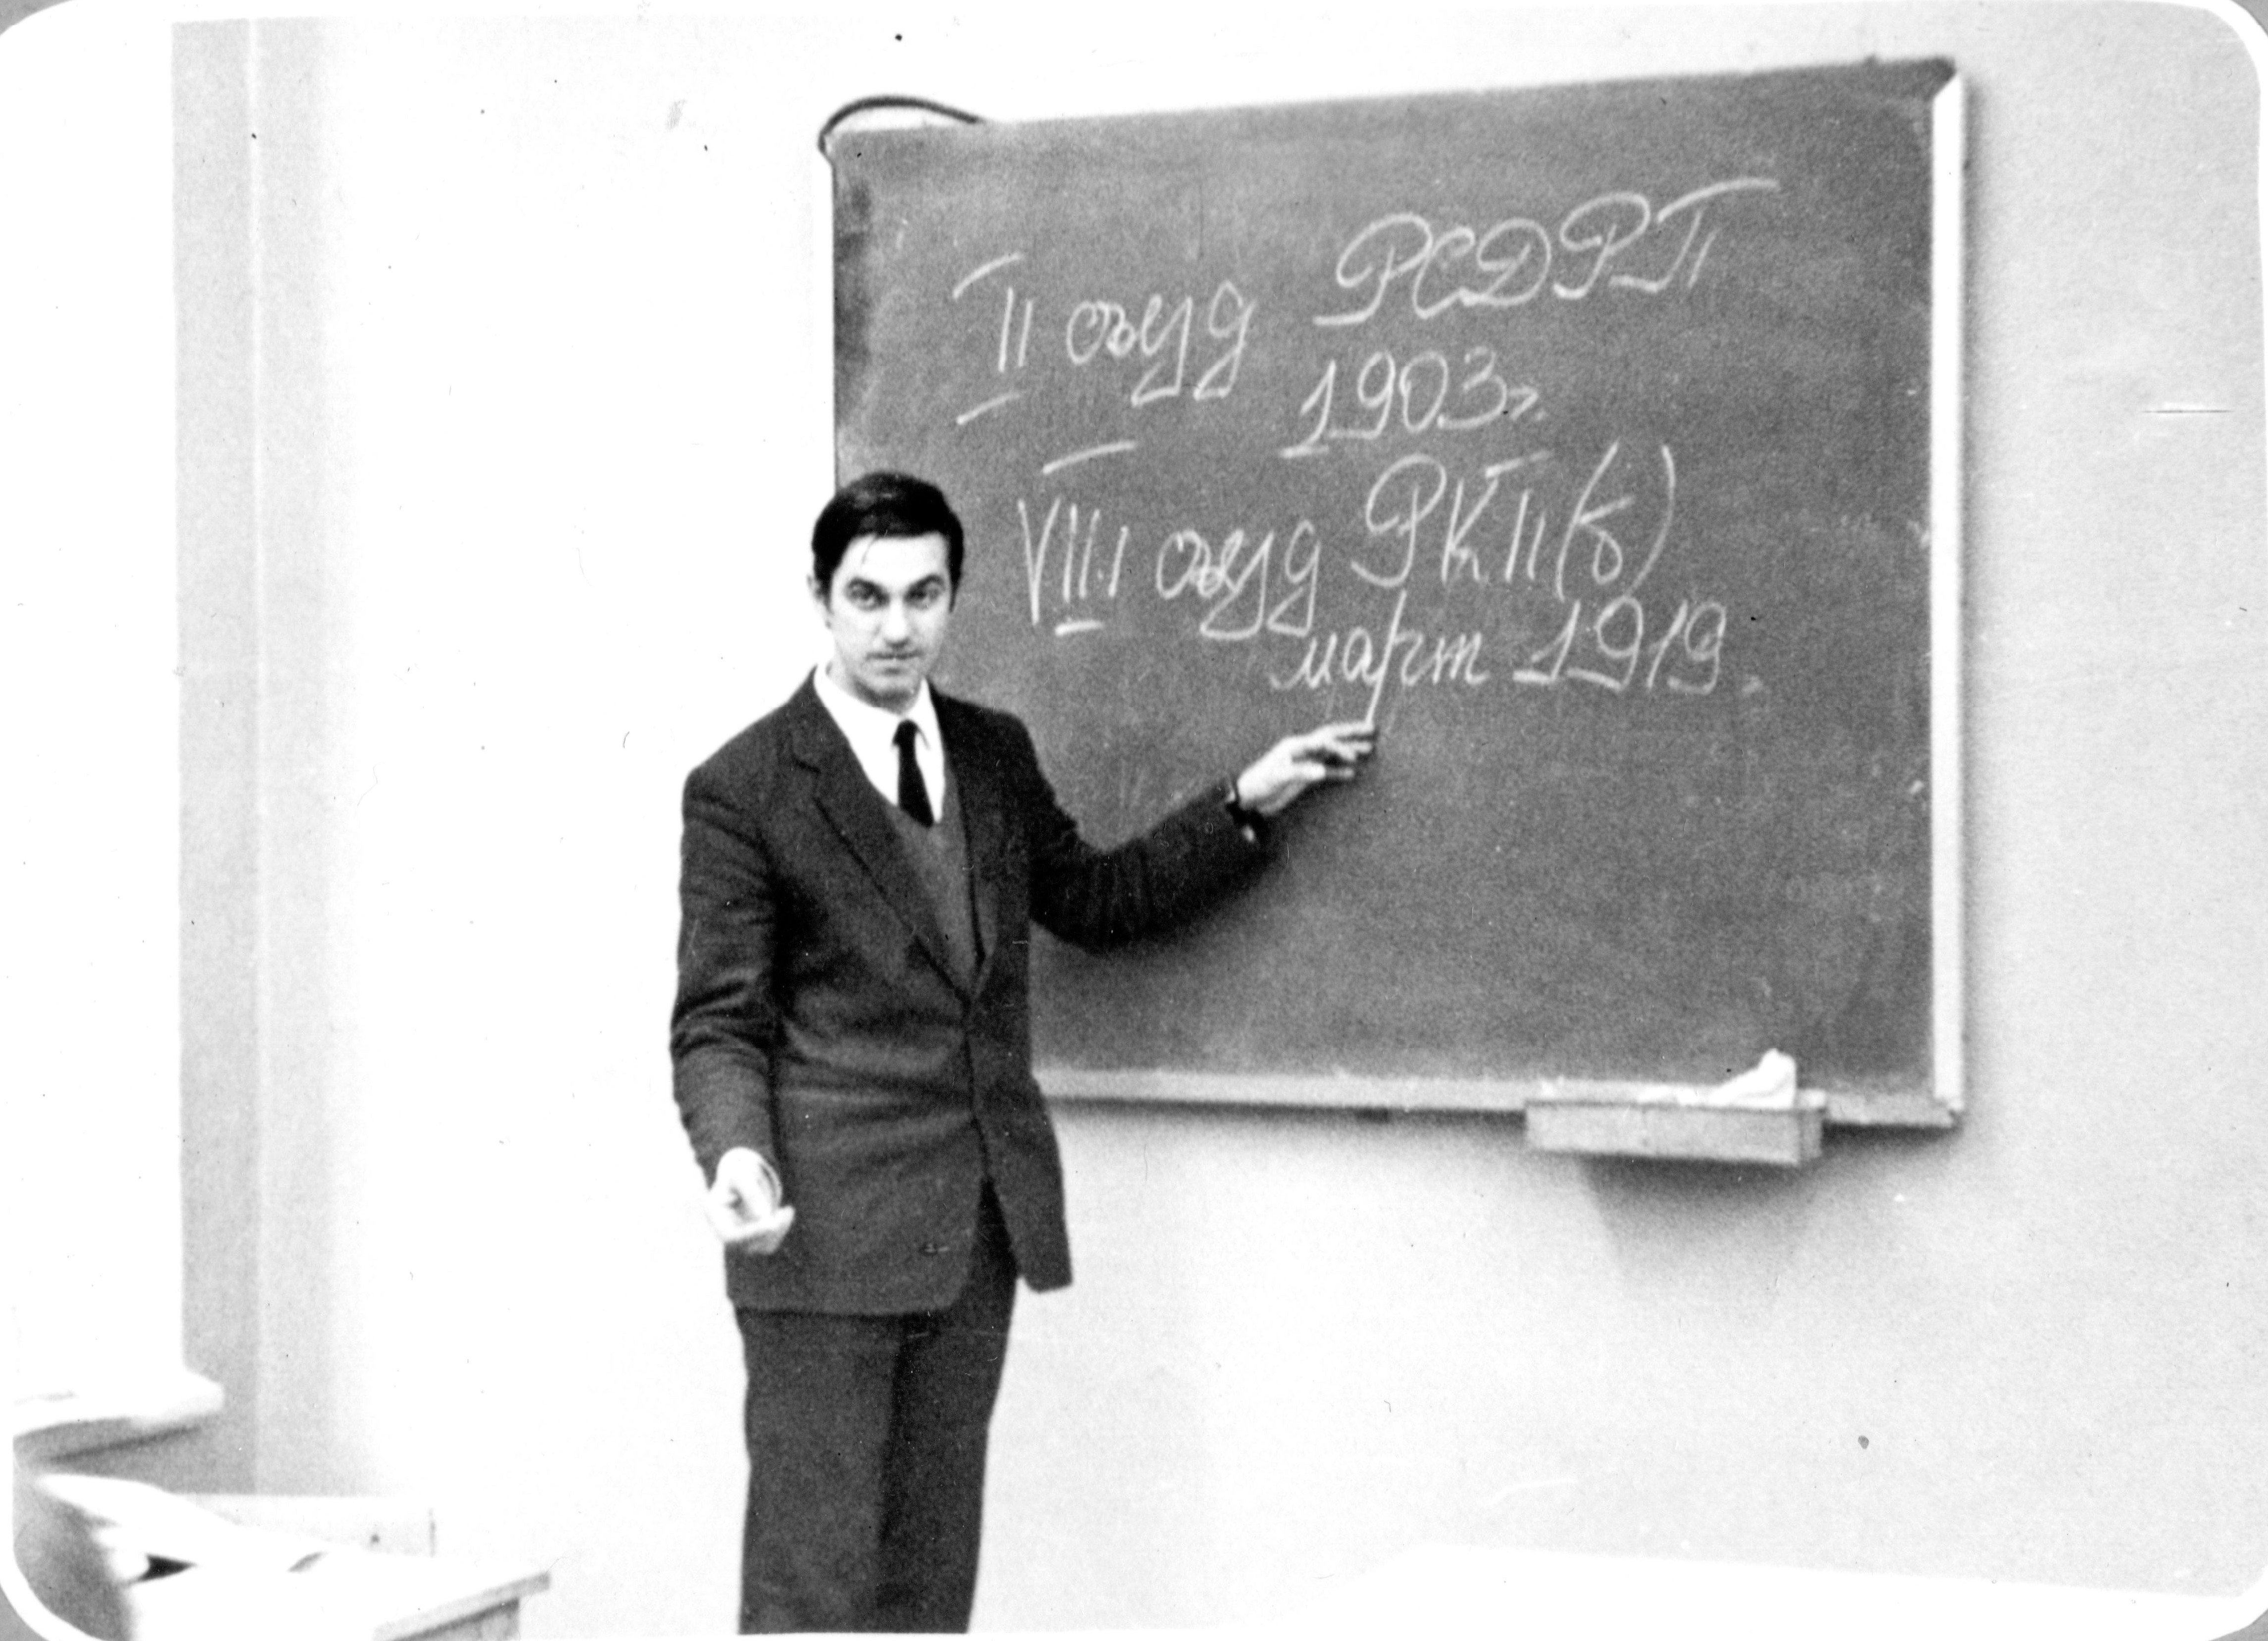 II съезд РСДРП
1903г.
VIII съезд РКП(б)
март 1919.